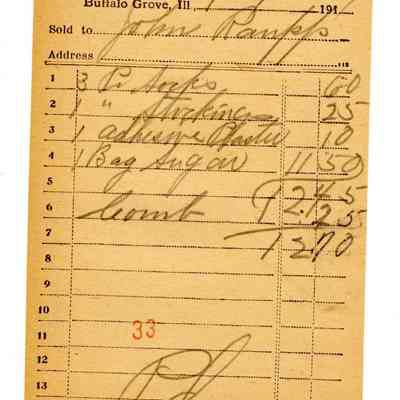 Buffalo Grove, Ill., 191
Sold to John Raupp
Address
1 3 Pr Socks 60
2 1 " Stockings 25
3 1 Adhesive Plaster 10
4 1 Bag Sugar 11 50
5 12.45
6 Comb .25
7 12 70
8
9
10
11 33
12
13